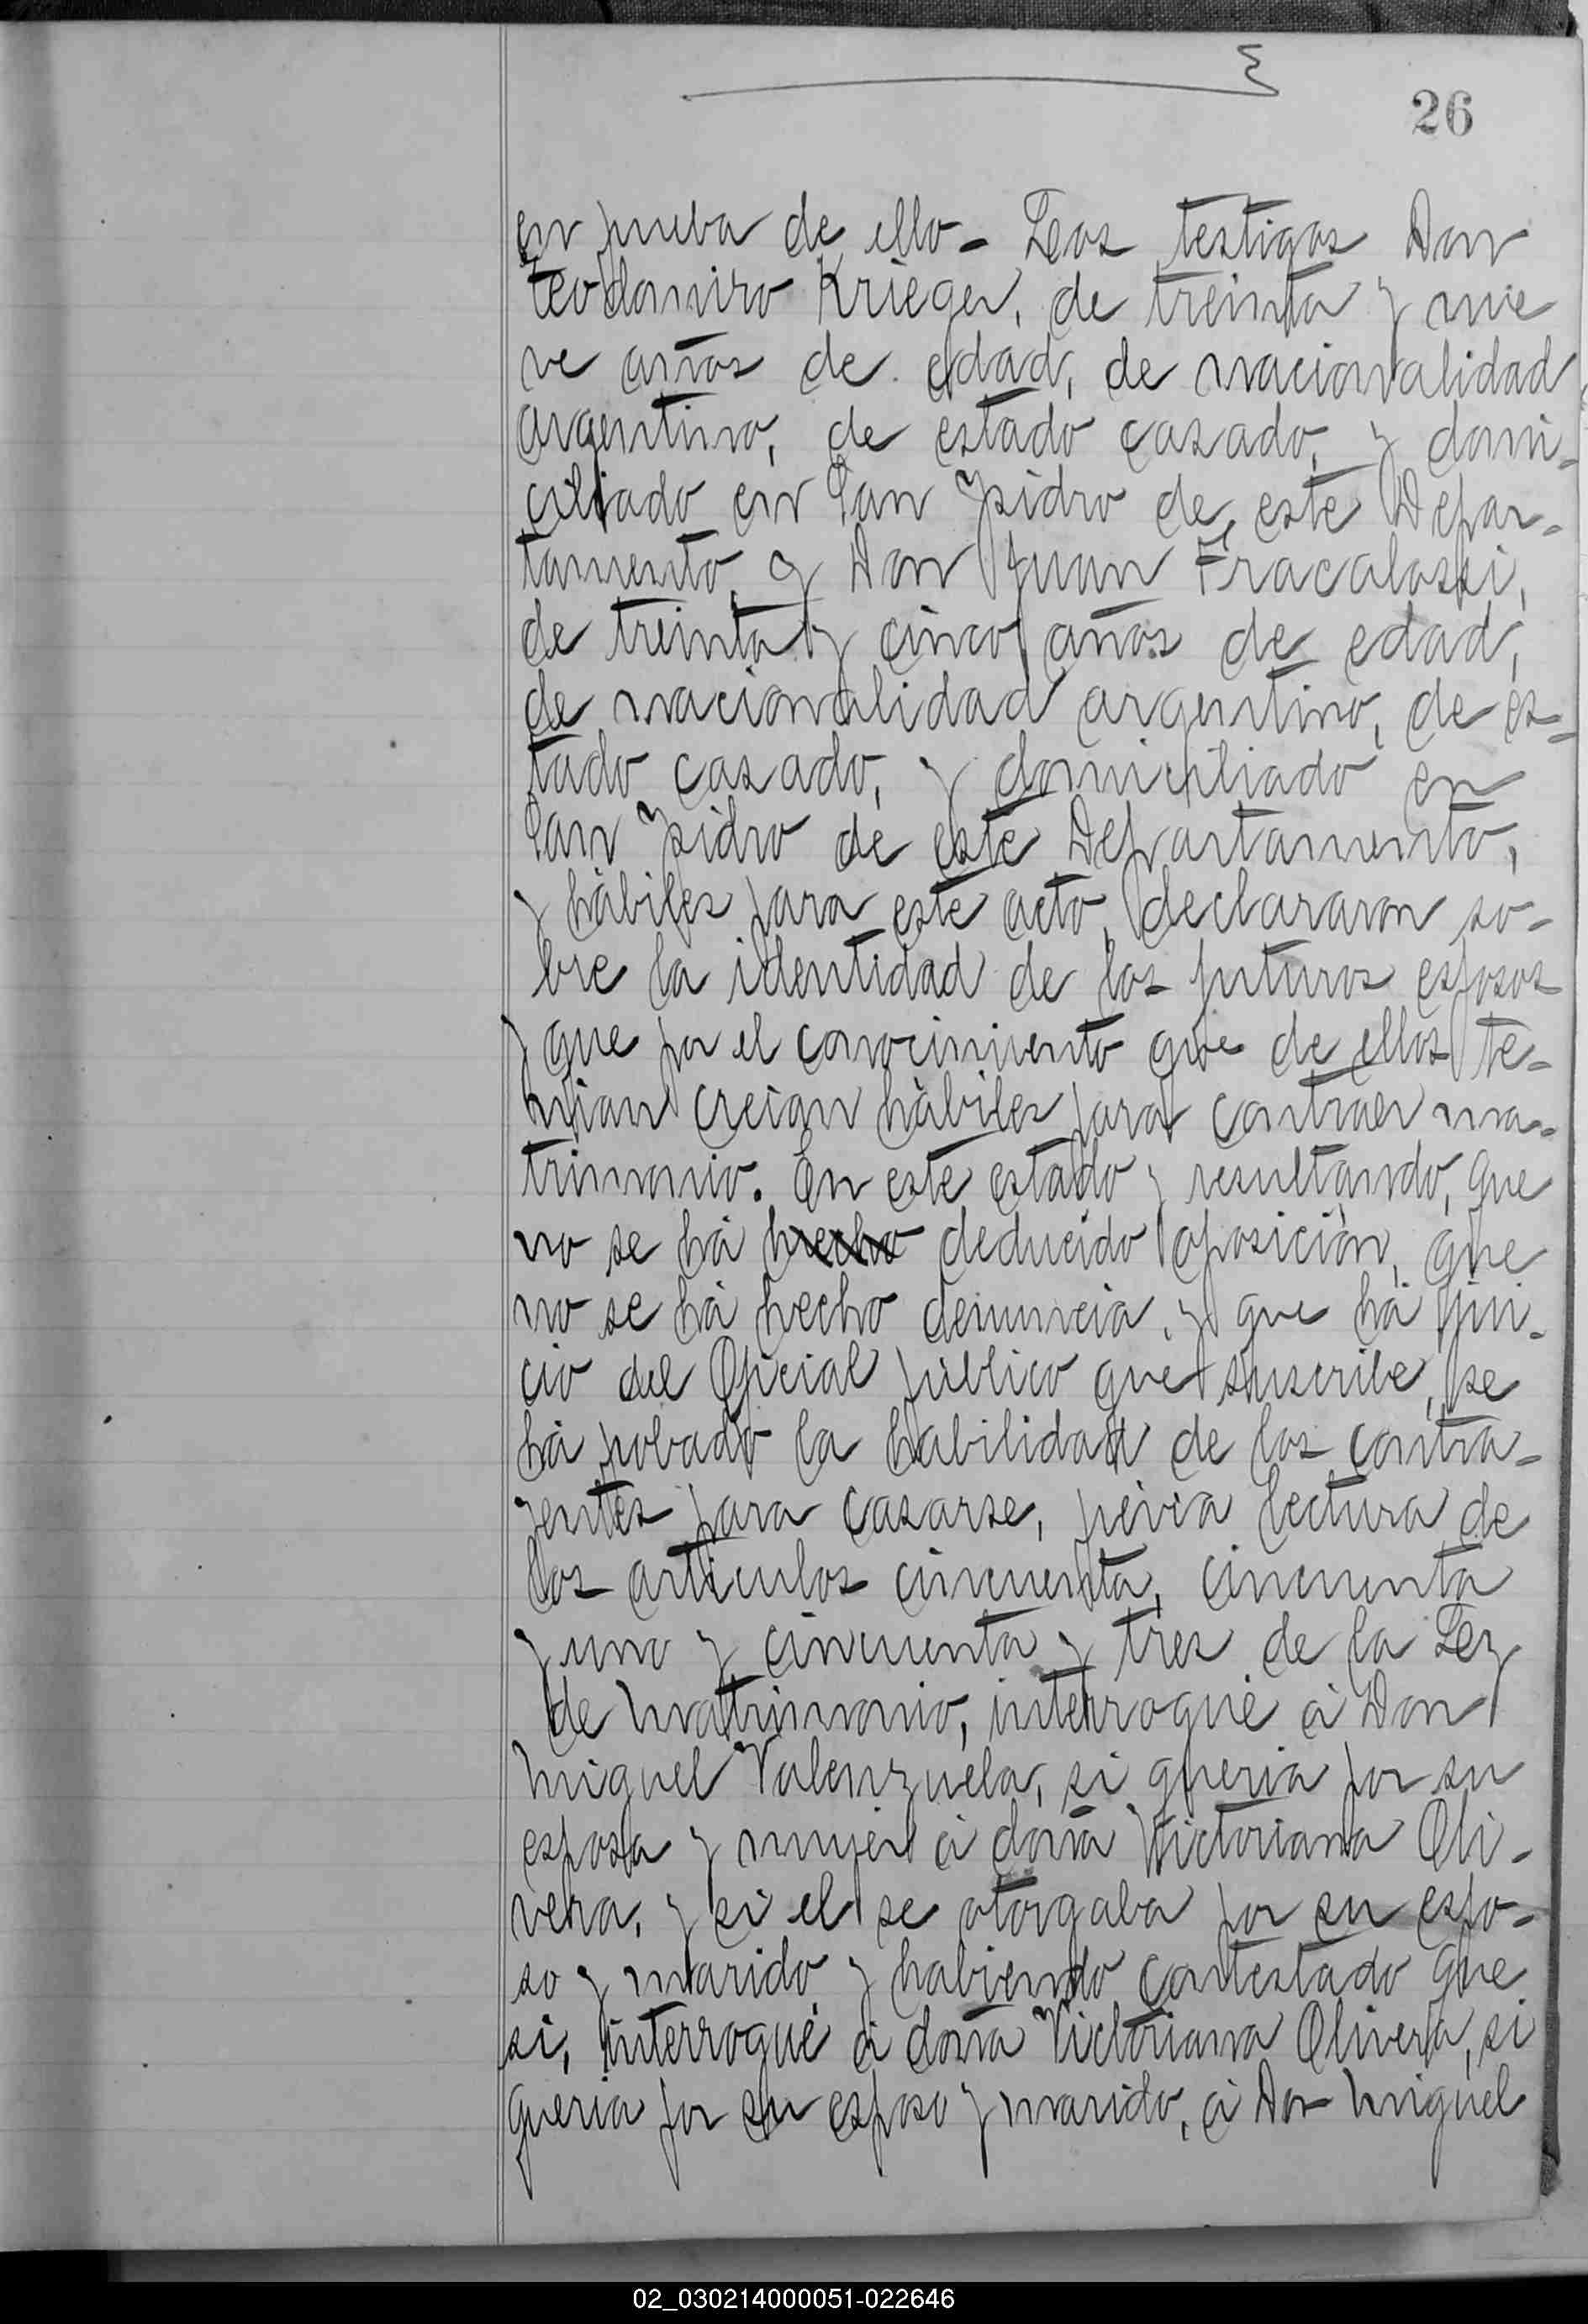 26
en prueba de ello - Los testigos Don
Teodomiro Krieger, de treinta y nue
ve años de edad, de nacionalidad
argentino, de estado casado, y domi-
ciliado en San Ysidro de este Depar-
tamento, y Don Juan Fracalossi,
de treinta y cinco años de edad,
de nacionalidad argentino, de es-
tado casado, y domiciliado en
San Ysidro de este Departamento,
y hàbiles para este acto, declararon so-
bre la identidad de los futuros esposos
y que por el conocimiento que de ellos te-
nian creian hàbiles para contraer ma-
trimonio. En este estado y resultando, que
no se hà hecho deducido oposición, que
no se hà hecho denuncia, y que hà jui-
cio del Oficial público que suscribe, se
hà probado la habilidad de los contra-
yentes para casarse, prévia lectura de
los articulos cincuenta, cincuenta
y uno y cincuenta y tres de la Ley
de Matrimonio, interrogué à Don
Miguel Valenzuela, si queria por su
esposa y mujer à doña Victoriana Oli-
vera, y si el se otorgaba por su espo-
so y marido, y habiendo contestado que
si, interrogué à doña Victoriana Olivera, si
queria por su esposo y marido, à Don Miguel
02_030214000051-022646